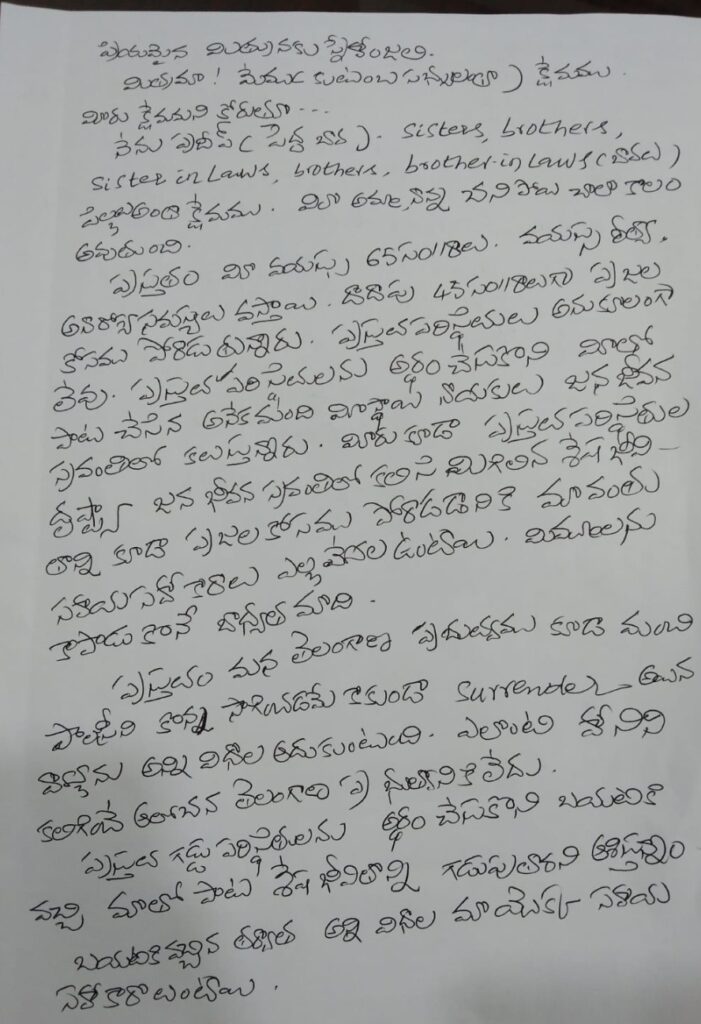 ప్రియమైన మిత్రునకు స్నేహాంజలి.
మిత్రమా! మేము (కుటుంబ సభ్యులంతా) క్షేమము.
మీరు క్షేమమని కోరుతూ ---
నేను ప్రదీప్ (పెద్ద బావ). sisters, brothers,
sister in Laws, brothers, brother-in Laws (బావలు)
పిల్లలు అంతా క్షేమము. మీ అమ్మ, నాన్న చనిపోయి చాలా కాలం
అవుతుంది.
ప్రస్తుతం మీ వయస్సు 65 సం॥రాలు. వయస్సు రీత్యా,
అనారోగ్య సమస్యలు వస్తాయి. దాదాపు 45 సం॥రాలుగా ప్రజల
కోసము పోరాడుతున్నారు. ప్రస్తుత పరిస్థితులు అనుకూలంగా
లేవు. ప్రస్తుత పరిస్థితులను అర్థం చేసుకొని మీతో
పాటు చేసిన అనేక మంది మీ స్థాయి నాయకులు జన జీవన
స్రవంతిలో కలుస్తున్నారు. మీరు కూడా ప్రస్తుత పరిస్థితుల
దృష్ట్యా జన జీవన స్రవంతిలో కలిసి మిగిలిన శేష జీవి-
తాన్ని కూడా ప్రజల కోసము పోరాడడానికి మా వంతు
సహాయ సహకారాలు ఎల్లవేళల ఉంటాయి. మిమ్మలను
కాపాడు కొనే బాధ్యత మాది.
ప్రస్తుతం మన తెలంగాణ ప్రభుత్వము కూడా మంచి
పాలసీని కొన సాగించడమే కాకుండా surrender అయిన
వాళ్ళను అన్ని విధాల ఆదుకుంటుంది. ఎలాంటి హానిని
కలిగించే ఆలోచన తెలంగాణ ప్రభుత్వానికి లేదు.
ప్రస్తుత గడ్డు పరిస్థితులను అర్థం చేసుకొని బయటికి
వచ్చి మాతో పాటు శేష జీవితాన్ని గడుపుతారని ఆశిస్తున్నాం
బయటికి వచ్చిన తర్వాత అన్ని విధాల మా యొక్క సహాయ
సహకారాలుంటాయి.